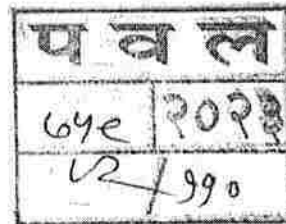 प व ल
७५९ २०२३
/ ११०